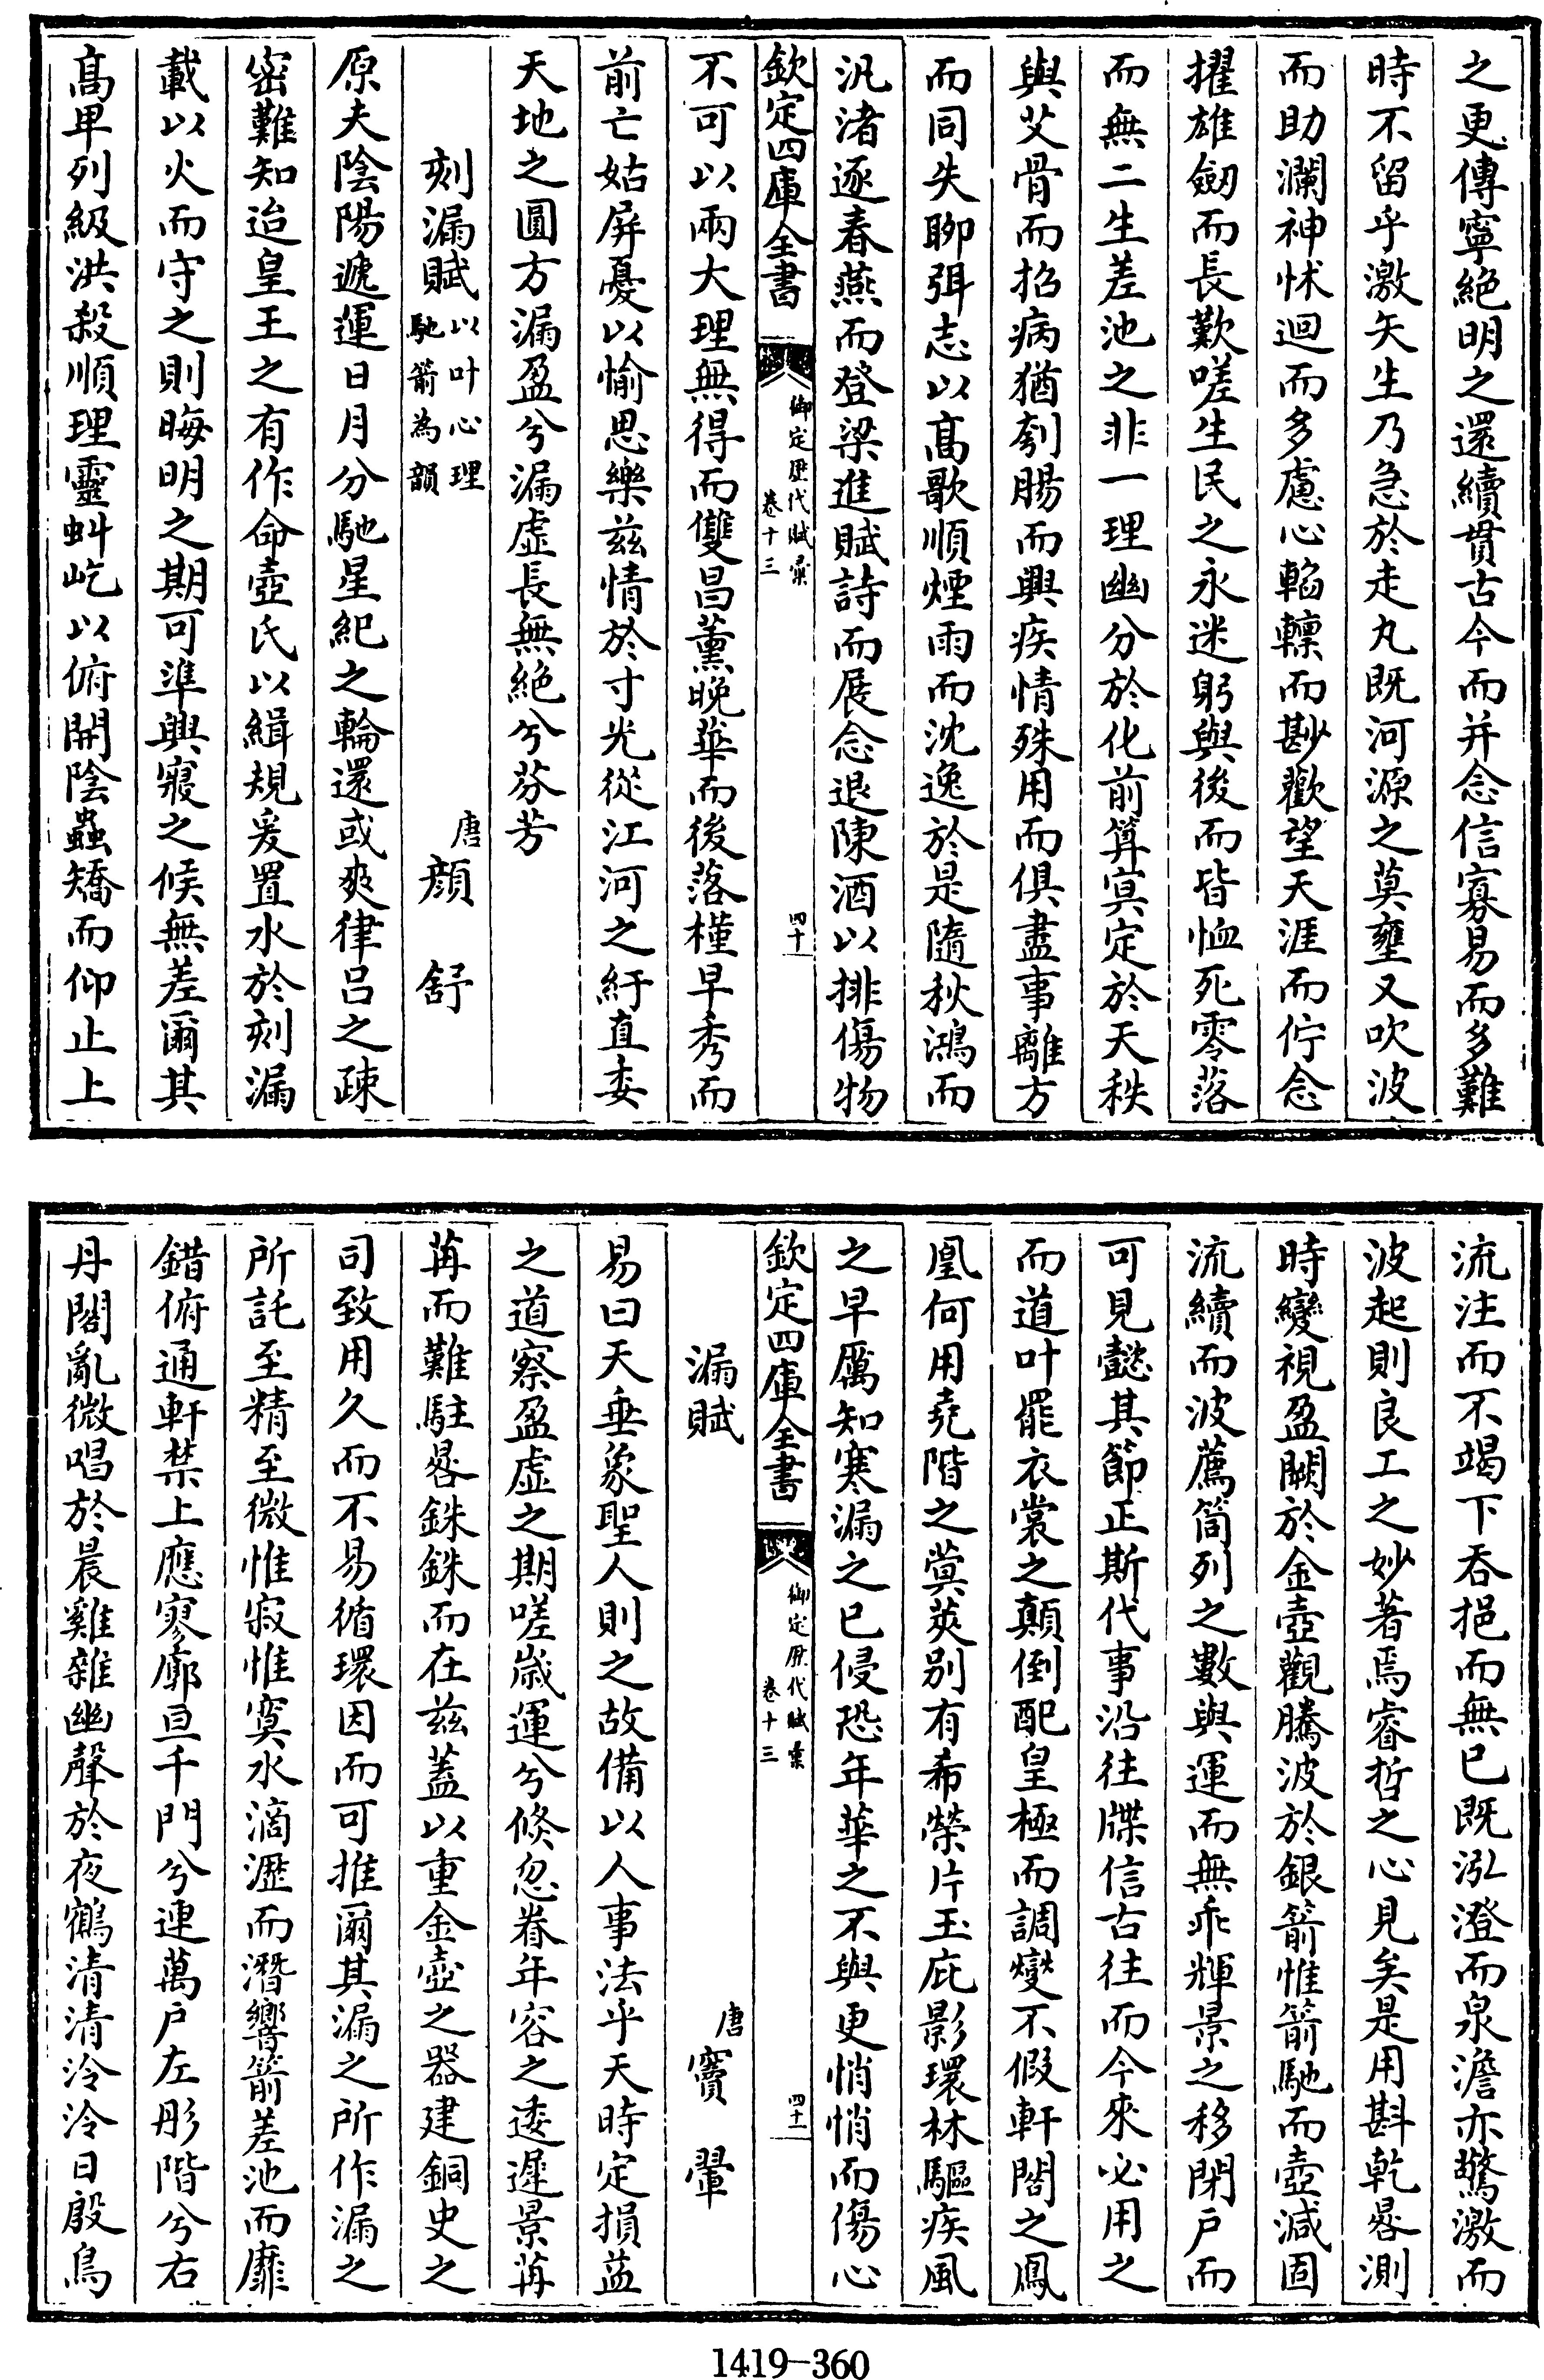 之更傳寧絕明之還續貫古今而并念信寡易而多難
時不留乎激矢生乃急於走丸既河源之莫壅又吹波
而助瀾神怵迴而多慮心輡轗而尠歡望天涯而佇念
擢雄劒而長歎嗟生民之永迷躬與後而皆恤死零落
而無二生差池之非一理幽分於化前算㝠定於天秩
與艾骨而招病猶刳腸而興疾情殊用而俱盡事離方
而同失聊弭志以髙歌順煙雨而沈逸於是隨秋鴻而
汎渚逐春燕而登梁進賦詩而展念退陳酒以排傷物
欽定四庫全書
御定歷代賦彙
卷十三
四十
不可以兩大理無得而雙昌薰晚華而後落槿早秀而
前亡姑屏憂以愉思樂兹情於寸光從江河之紆直委
天地之圓方漏盈兮漏虛長無絕兮芬芳
刻漏賦以叶心理馳箭為韻
唐顔舒
原夫陰陽遞運日月分馳星紀之輪還或爽律呂之疎
密難知迨皇王之有作命壺氏以緝規爰置水於刻漏
載以火而守之則晦明之期可準興寢之候無差爾其
髙卑列級洪殺順理靈虯屹以俯開陰蟲矯而仰止上
流注而不竭下吞挹而無已既泓澄而泉澹亦驚激而
波起則良工之妙著焉睿哲之心見矣是用斟乾晷測
時變視盈闕於金壺觀騰波於銀箭惟箭馳而壺減固
流續而波薦筒列之數與運而無乖輝景之移閉戶而
可見懿其節正斯代事沿往牒信古往而今來必用之
而道叶罷衣裳之顛倒配皇極而調燮不假軒閣之鳳
凰何用堯階之蓂莢別有希榮片玉庇影環林驅疾風
之早厲知寒漏之已侵恐年華之不與更悄悄而傷心
欽定四庫全書
御定歷代賦彙
卷十三
四十一
漏賦
唐竇翬
易曰天垂象聖人則之故備以人事法乎天時定損益
之道察盈虛之期嗟歲運兮倏忽眷年容之逶遲景苒
苒而難駐晷銖銖而在兹蓋以重金壺之器建銅史之
司致用久而不易循環因而可推爾其漏之所作漏之
所託至精至微惟寂惟寞水滴瀝而潛響箭差池而靡
錯俯通軒禁上應寥廓亘千門兮連萬戶左彤階兮右
丹閣亂微唱於晨雞雜幽聲於夜鶴清清泠泠日殷鳥
1419-360